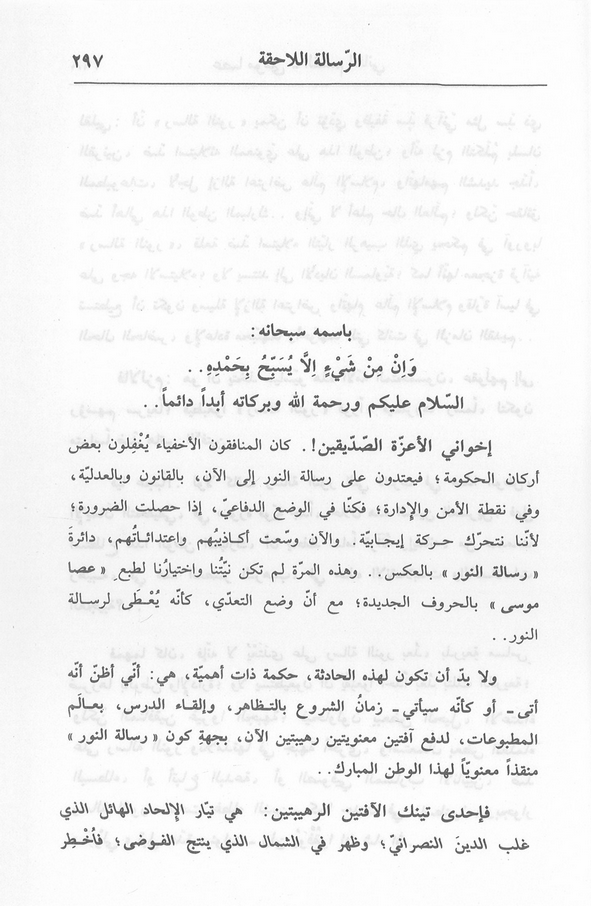 الرّسالة اللاحقة ٢٩٧
باسمه سبحانه:
وَاِنْ مِنْ شَيْءٍ اِلَّا يُسَبِّحُ بِحَمْدِهِ..
السّلام عليكم ورحمة الله وبركاته أبداً دائماً..
إخواني الأعزّة الصّدّيقين!. كان المنافقون الأخفياء يُغْفِلون بعض
أركان الحكومة؛ فيعتدون على رسالة النور إلى الآن، بالقانون وبالعدليّة،
وفي نقطة الأمن والإدارة؛ فكنّا في الوضع الدفاعيّ، إذا حصلت الضرورة؛
لأنّنا نتحرّك حركة إيجابيّة. والآن وسّعت أكـاذيبُهم واعتدائـاتُـهم، دائرةَ
« رسالة النور » بالعكس.. وهذه المرّة لم تكن نيّتُنا واختيارُنا لطبع « عصا
موسى » بالحروف الجديدة؛ مع أنّ وضع التعدّي، كأنّه يُعْـطَى لرسـالة
النور..
ولا بدّ أن تكون لهذه الحادثة، حكمة ذات أهميّة، هي: أنّي أظنّ أنّه
أتى- أو كأنّه سيأتي- زمانُ الشروع بالتـظاهر، وإلقـاء الدرس، بعـالَم
المطبوعات، لدفع آفتين معنويتين رهيبتين الآن، بجهةِ كون « رسالة النور »
منقذاً معنويّاً لهذا الوطن المبارك..
فإحدى تينك الآفتين الرهيبتين: هي تيّار الإلحاد الهائل الذي
غلب الدينَ النصرانيّ؛ وظهر في الشمال الذي ينتج الفـوضى؛ فـأُخْـطِر